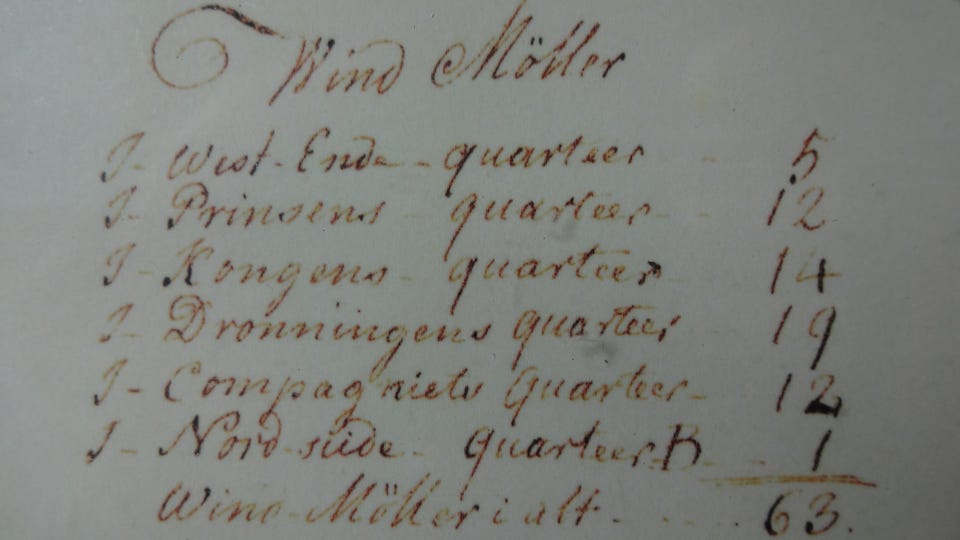 Wind Möller
I - West-Ende - quarteer - - 5
I - Prinsens - quarteer - - 12
I - Kongens - quarteer - 14
I - Dronningens quarteer - 19
I - Compagniets Quarteer - 12
I - Nord-siide - Quarteer B - - 1
Wind-Möller i alt - . . . . . 63.